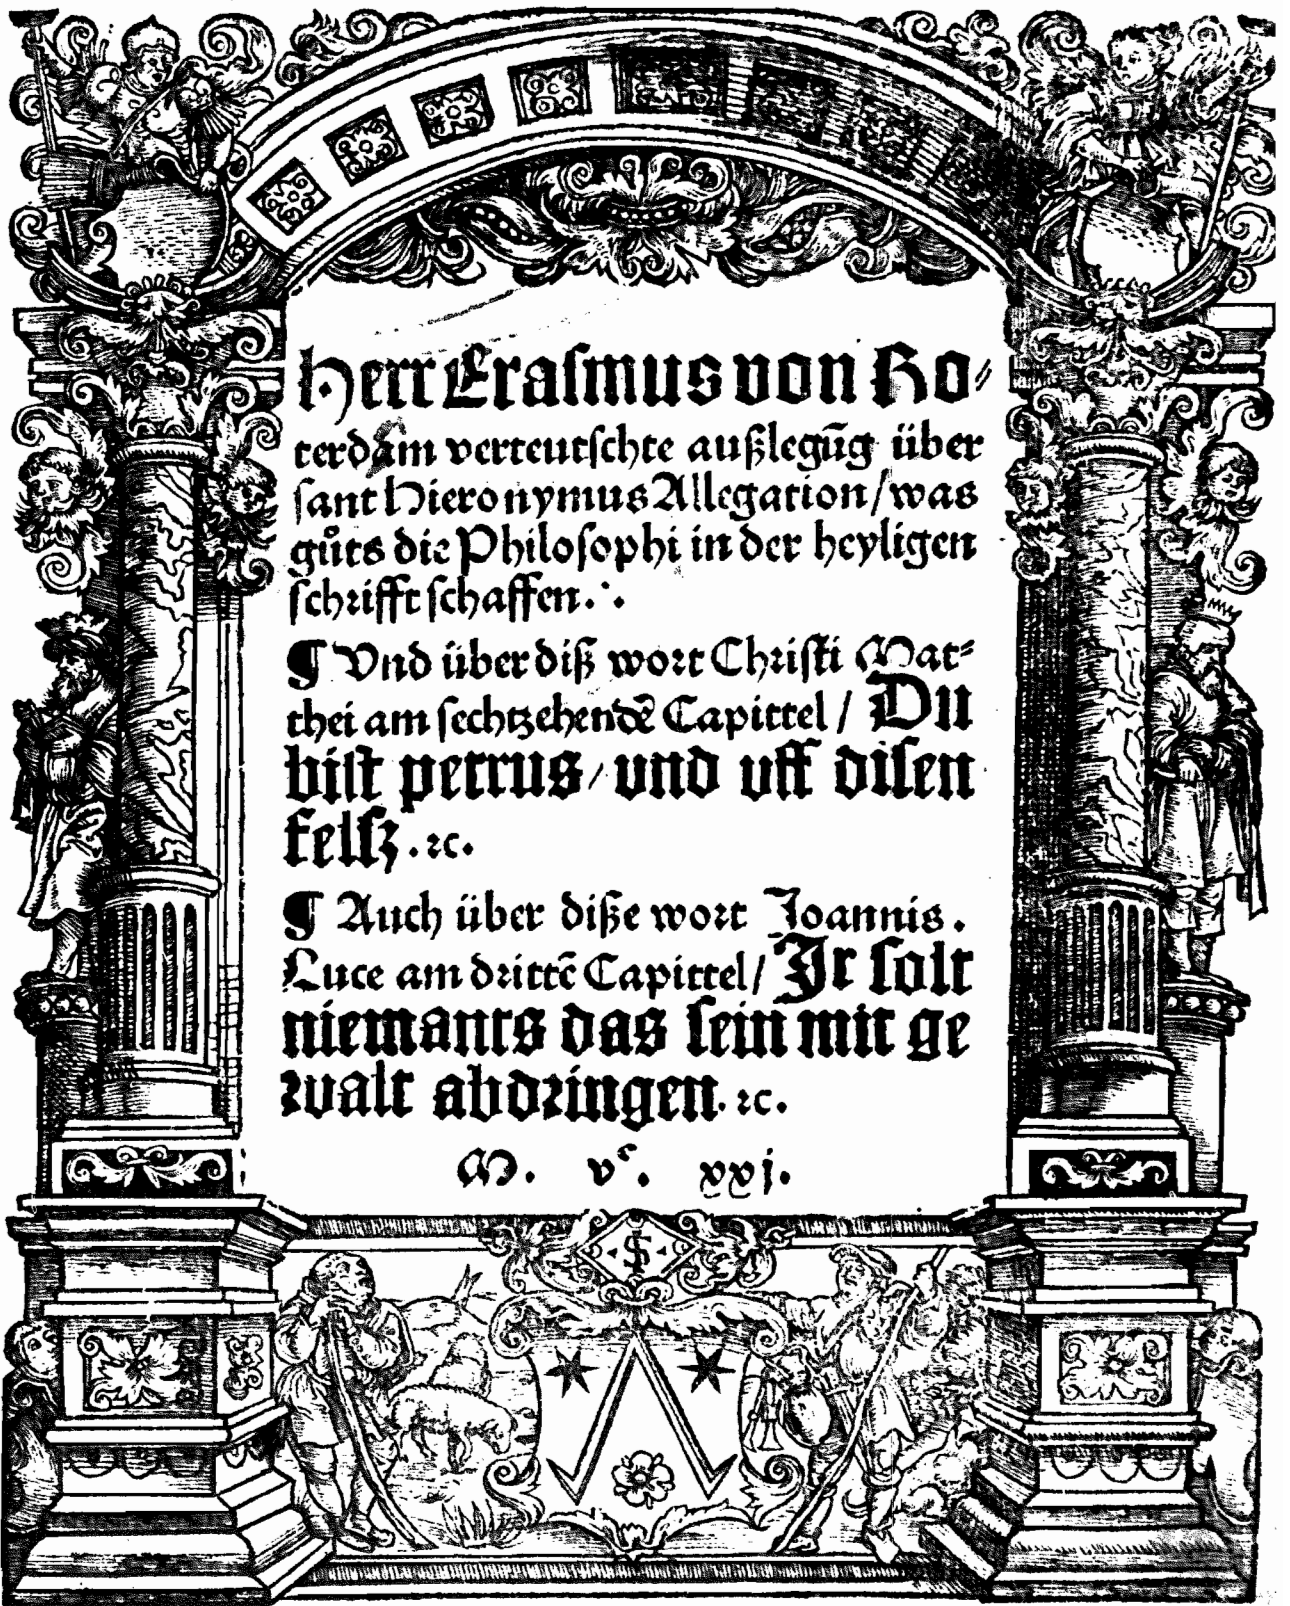 Herr Eraſmus von Ro⸗
terdam verteutſchte außlegūg über
ſant Hieronymus Allegation/ was
gůts die Philoſophi in der heyligen
ſchrifft ſchaffen.·.
¶ Vnd über diß wort Chriſti Mat⸗
thei am ſechtzehendē Capittel / DU
biſt petrus/ vnd vff diſen
felſz .ꝛc.
¶ Auch über diße wort Joannis.
Luce am drittē Capittel/ Jr ſolt
niemants das ſein mit ge
walt abdringen. ꝛc.
M. vᶜ. xxj.